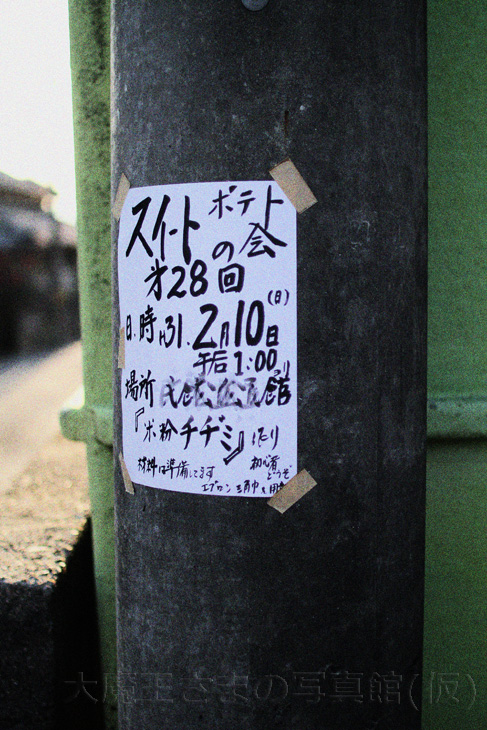 スイートポテト
の会
才28回
日.時 H31.2月10日(日)
午后1:00より
場所 公民館
『米粉チヂミ』ほか
材料は準備してます 初心者どうぞ
エプロン 三角巾を用意
大魔王さまの写真館(仮)